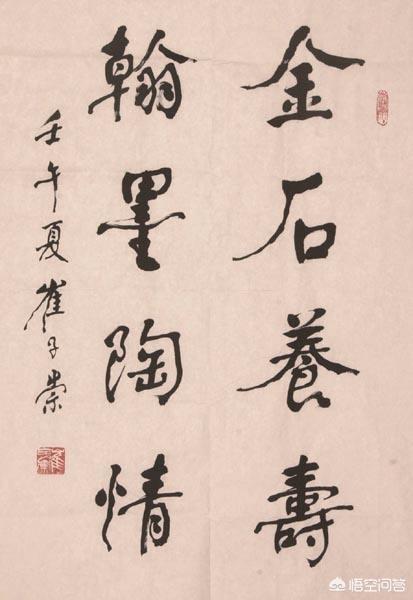 金石養壽
翰墨陶情
壬午夏崔子崇
悟空问答